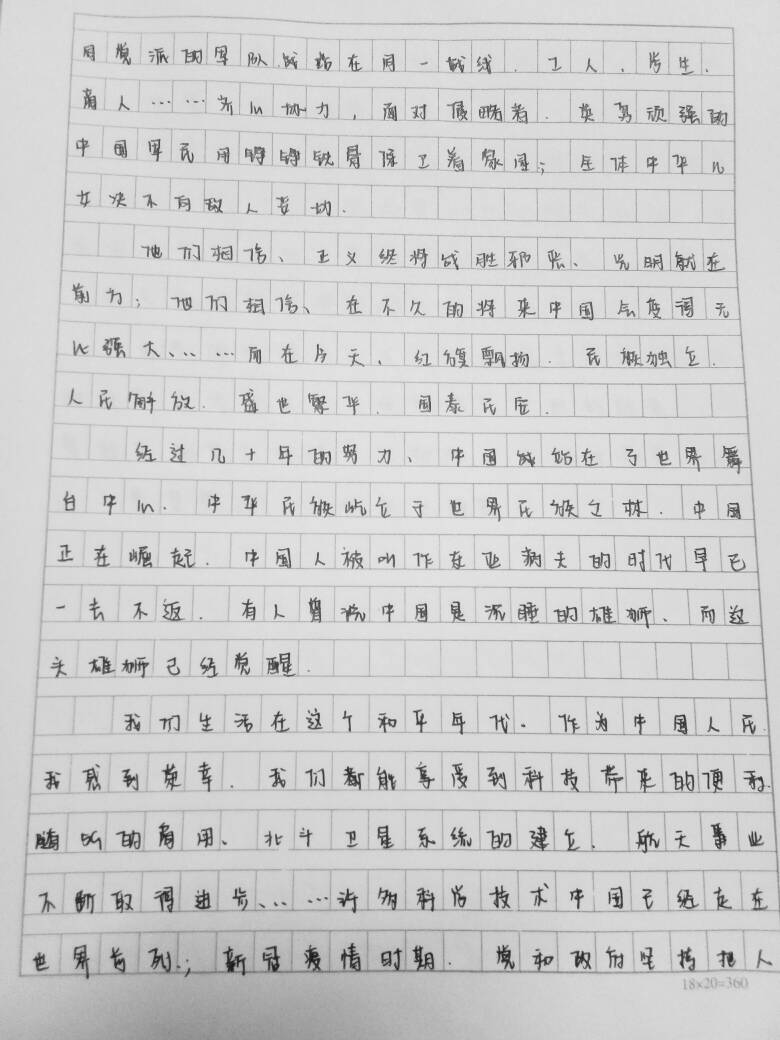 同党派的军队战站在同一战线，工人，学生，
商人……齐心协力，面对侵略者，英勇顽强的
中国军民用铮铮铁骨保卫着家国；全体中华儿
女决不向敌人妥协.
他们相信、正义终将战胜邪恶、光明就在
前方；他们相信、在不久的将来中国会变得无
比强大、……而在今天、红旗飘扬，民族独立，
人民解放，盛世繁华，国泰民安.
经过几十年的努力、中国战站在了世界舞
台中心，中华民族屹立于世界民族之林，中国
正在崛起，中国人被叫作东亚病夫的时代早已
一去不返，有人曾说中国是沉睡的雄狮、而这
头雄狮已经觉醒.
我们生活在这个和平年代、作为中国人民
我感到荣幸，我们都能享受到科技带来的便利.
随5G的商用、北斗卫星系统的建立、航天事业
不断取得进步、……许多科学技术中国已经走在
世界前列.；新冠疫情时期，党和政府坚持把人
18×20=360